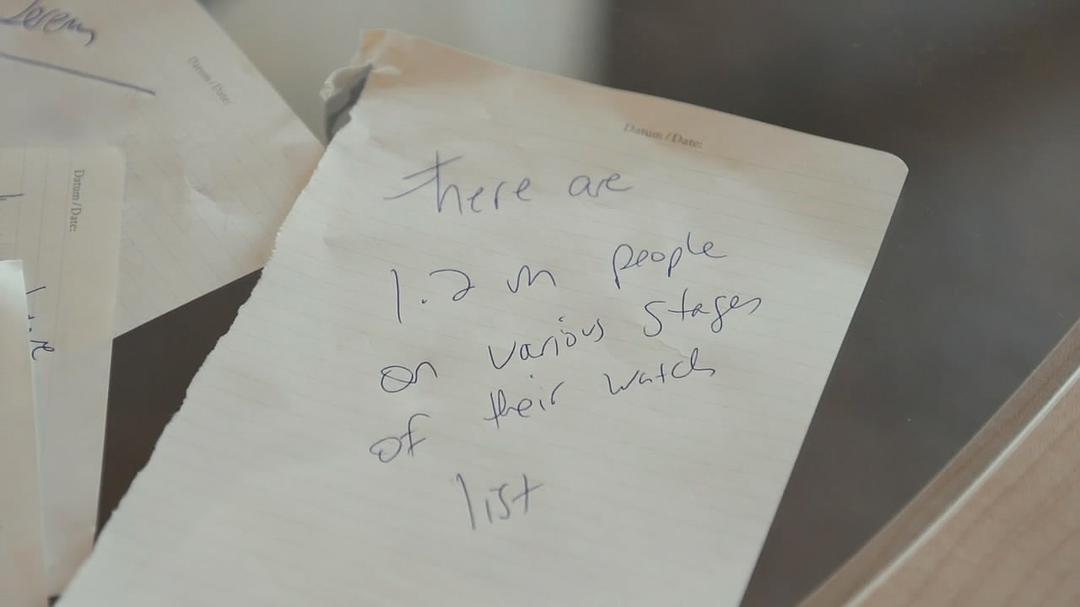 Jeremy
Datum / Date:
Datum / Date:
Datum / Date:
there are
1.2 m people
on various stages
of their watch
list